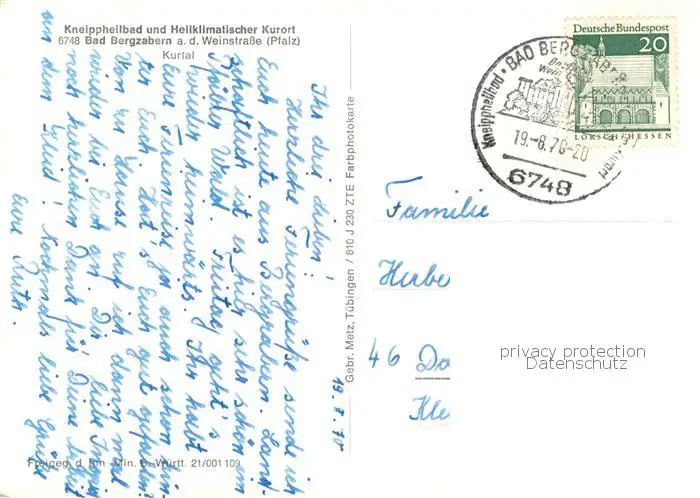 Kneippheilbad und Heilklimatischer Kurort
6748 Bad Bergzabern a. d. Weinstraße (Pfalz)
Kurtal
Ihr drei Lieben!
Herzliche Feriengrüße sende ich
Euch heute aus Bergzabern. Land-
schaftlich ist es hier sehr schön im
Pfälzer Wald. Freitag geht's
wieder heimwärts. Ihr habt
Eure Ferienreise ja auch schon hin-
ter Euch. Hat's Euch gut gefallen?
Von zu Hause ruf ich dann mal
wieder bei Euch an. Dir, liebe
noch herzlichen Dank für Deine Arbeit
an dem Kleid! Nochmals liebe Grüße
Eure Ruth.
19. 8. 70
Freigeg. d. Inn.-Min. B. Württ. 21/001109
Gebr. Metz, Tübingen / 810 J 230 ZTE Farbphotokarte
Deutsche Bundespost
20
LORSCH/HESSEN
Kneippheilbad · BAD BERGZABERN
19.-8.70-20
6748
Familie
Herbe
46 Do
Kle
privacy protection
Datenschutz